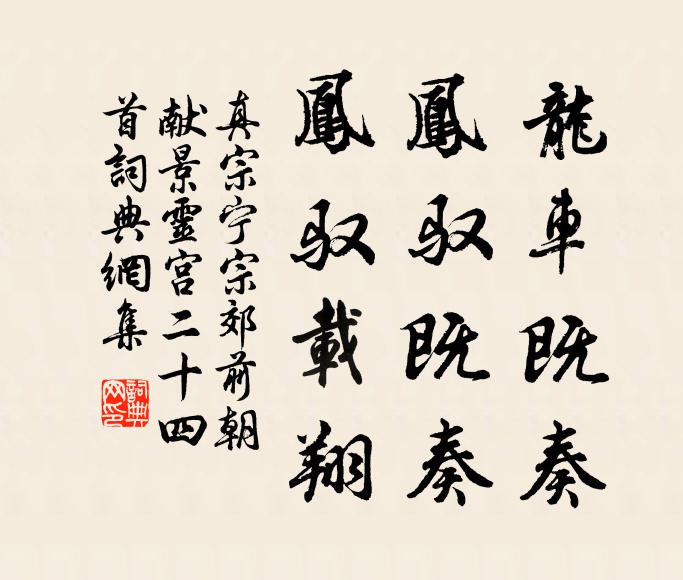 龍車既奏
鳳驭既奏
鳳驭載翔
真宗宁宗郊前朝
献景靈宫二十四
首詞典網集
詞典
网印